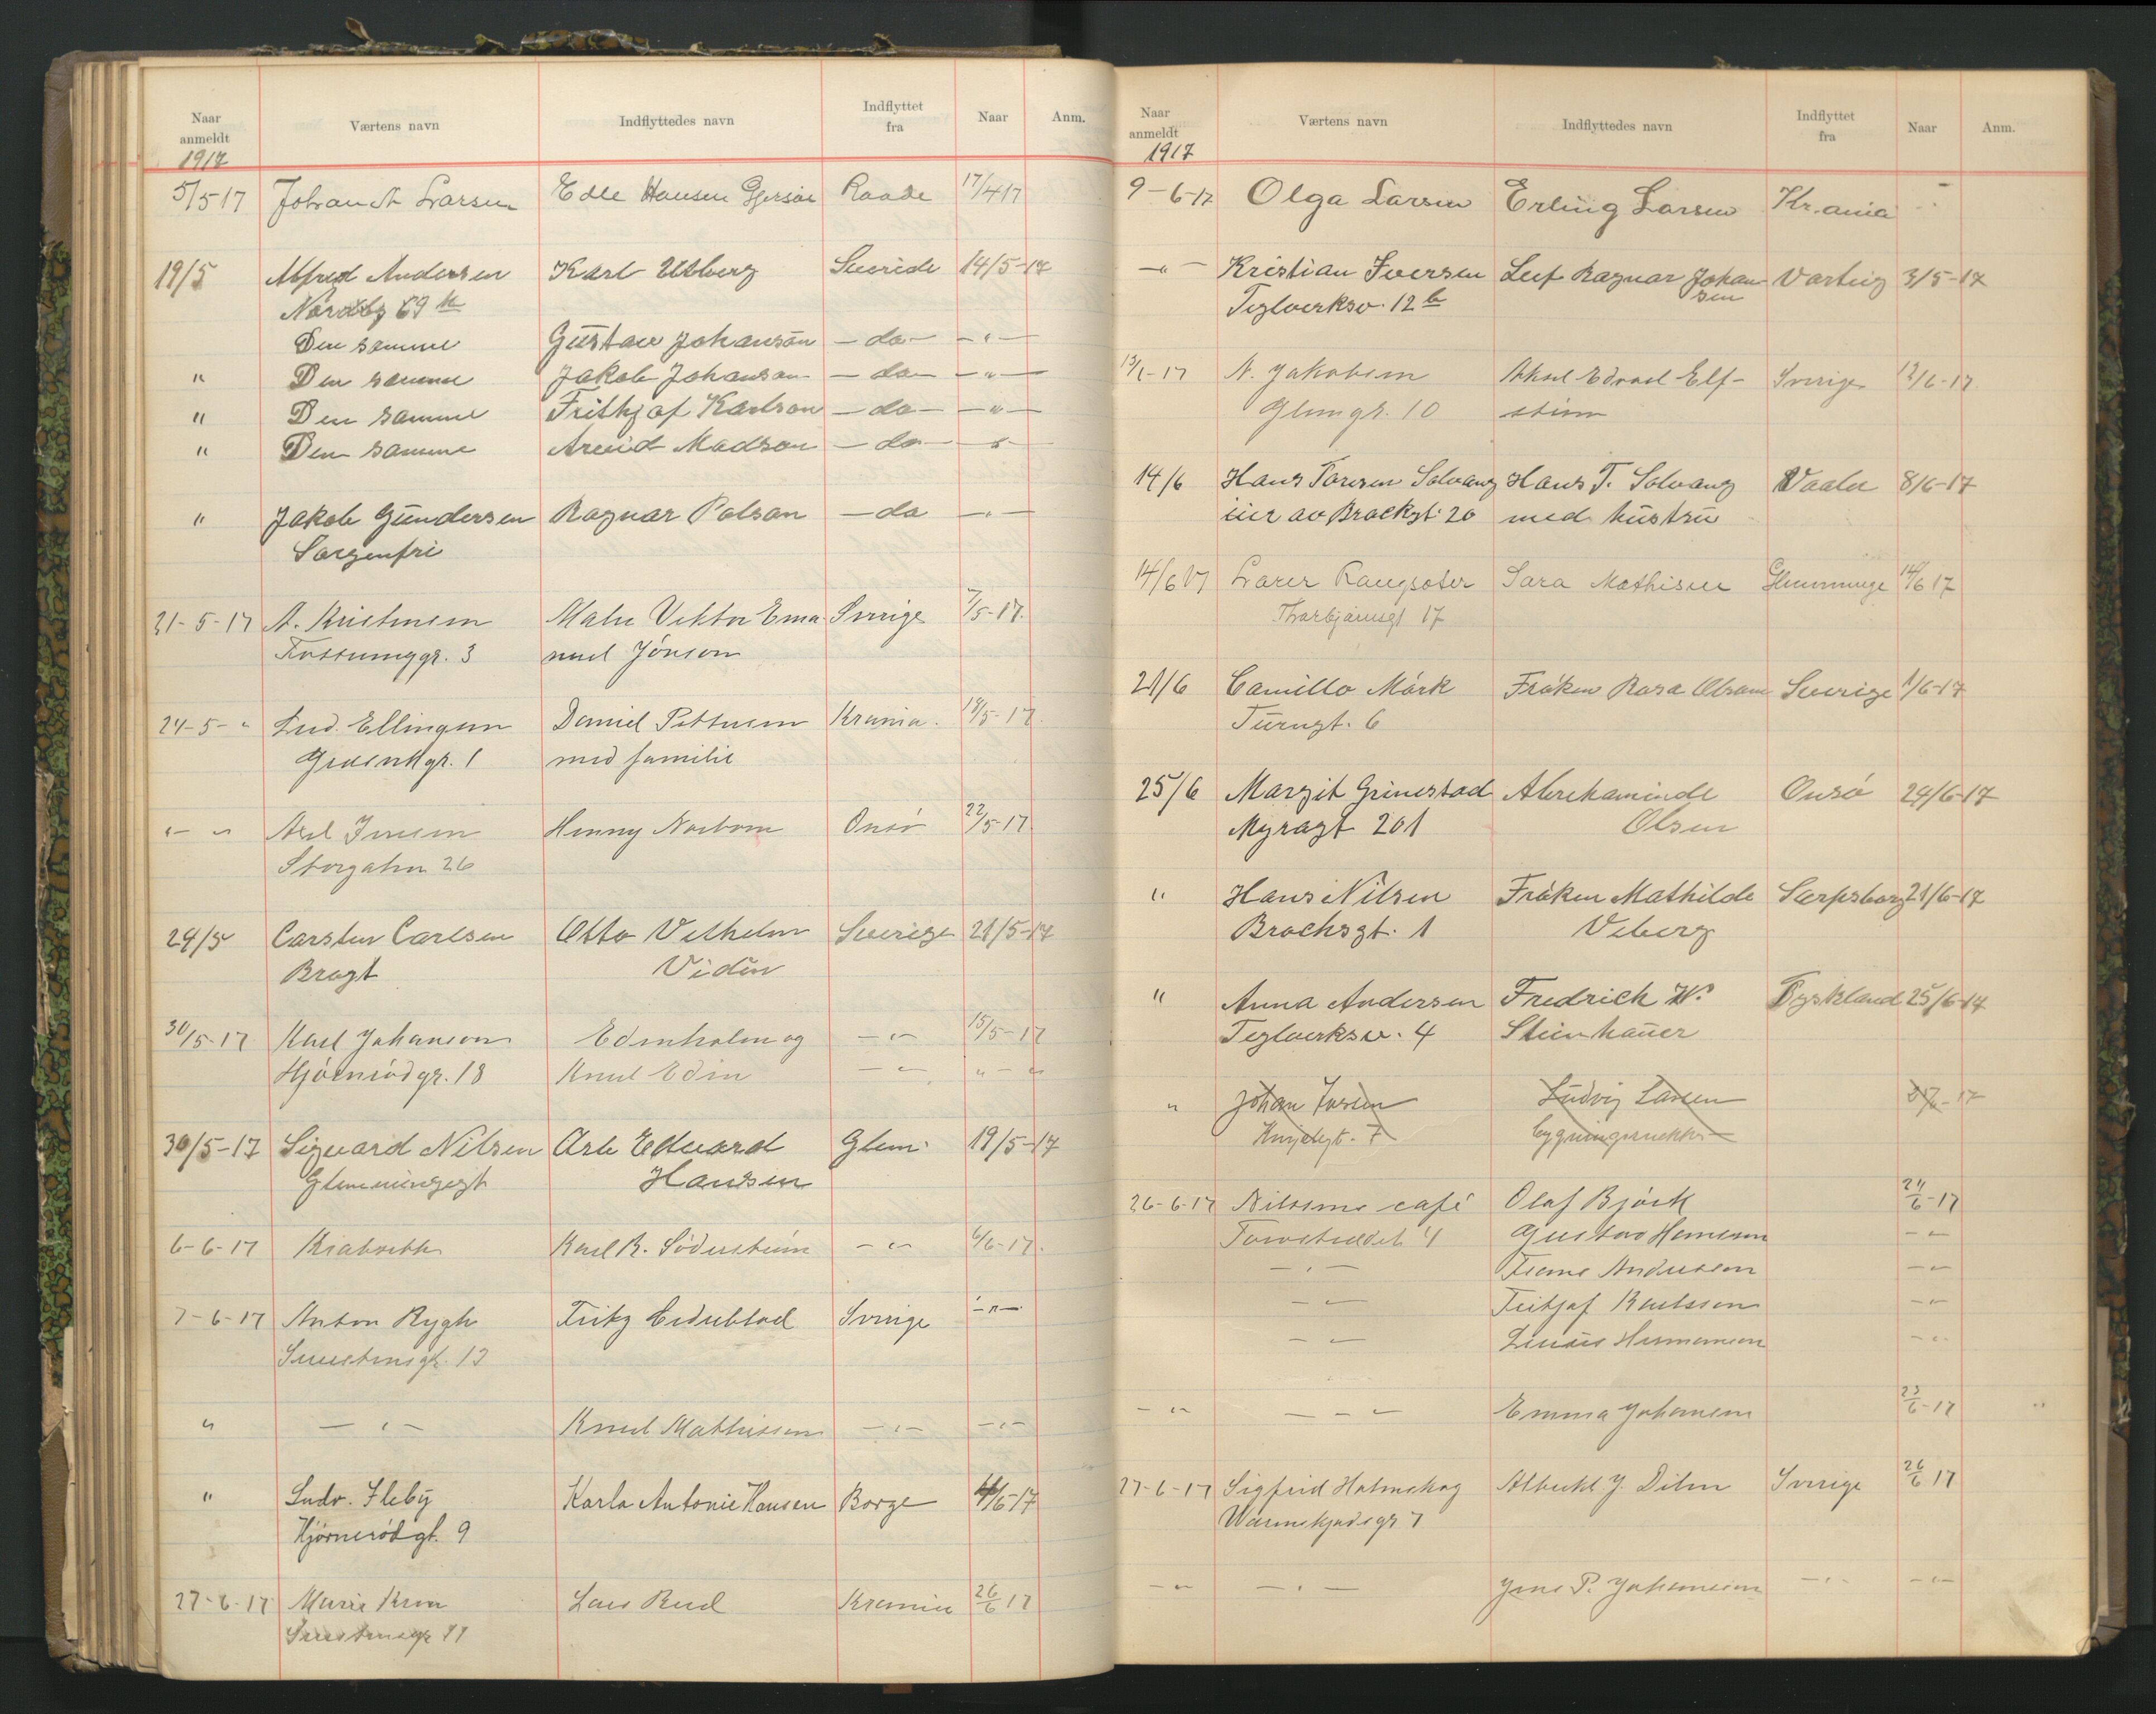 Naar anmeldt Værtens navn Indflyttedes navn Indflyttet fra Naar Anm.
1917
5/5 17 Johan A Larsen Edle Hansen Raade 17/4 17
19/5 Alfred Andersen Karl Utberg Sveride 14/5-17
Nordby 69
Den samme Gustav Johanson -do- -"-
" Den samme Jakob Johanson -do- -"-
" Den samme Frithjof Karlson -do- -"-
" Den samme Arvid Madson -do- -"-
" Jakob Gundersen Ragnar Polson -do -"-
Sorgenfri
21-5-17 A. Kristensen Viktor Ema Sverige 7/5-17.
gr. 3 nuel Jönson
24-5-" Lud. Ellingsen Daniel Pettersen Krania. 18/5-17.
gr. 1 med familie
"- " Axel Jensen Henny Norbom Onsö 22/5-17
Storgaten 26
24/5 Carsten Carlsen Otto Vilhelm Sverige 21/5-17
Bragt Vidin
30/5-17 Karl Johanson Edenholm og -"- 15/5-17
Hjörnerödgr. 18 Knut Edin -"- "-"
30/5-17 Sigvard Nilsen Arle Edvard Glem. 19/5-17
Glemmingegt Hansen
6-6-17 Karl R. Söderström -"- 6/6-17.
7-6-17 Anton Rygh Fritz Sverige -"-
gt. 13
" -"- Knut Mathissen -"- -"-
" Ludv. Fleby Karla Antonie Hansen Borge 4/6-17
Hjørnerødgt. 9
27-6-17 Marie Lars Rud Krania 26/6 17
Naar anmeldt Værtens navn Indflyttedes navn Indflyttet fra Naar Anm.
1917
9-6-17 Olga Larsen Erling Larsen Kr.ania -"-
-"- Kristian Iversen Leif Ragnar Johan Varteig 3/5-17
Teglverksv. 12 b sen
13/6-17 N. Jakobsen Edvard Elf- Sverige 12/6-17.
Glemgt. 10
14/6 Hans Toresen Solvang Hans T. Solvang Vaaler 8/6-17
eier av Brochsgt. 20 med hustru
14/6 17 Sara Mathisen Glemminge 14/6 17
Thorbjørnsgt 17
21/6 Camillo Mörk Fröken Rosa Olsson Sverige 1/6-17
Turngt. 6
25/6 Margit Grimestad Onsö 24/6-17
Myragt 201 Olsen
" Hans Nilsen Fröken Mathilde Sarpsborg 21/6-17
Brochsgt. 1 Veberg
" Anna Andersen Fredrich W. Tyskland 25/6-17
Teglverksv. 4 Steinhauer
" Johan Iversen Ludvig Larsen
7
26-6-17 Nilssens café Olaf Björk 21/6-17
Torvstrædet 4 Gustav Hermanson -"-
-"- Frans Anderson -"-
-"- Fritjof Karlsson -"-
-"- Linus Hermanson -"-
-"- -"- Emma Johansen 23/6-17
27-6-17 Sigfrid Holmskog Albrekt J. Dilen Sverige 26/6 17
gr 7
-"- -"- Jens P. Johannson -"- -"-